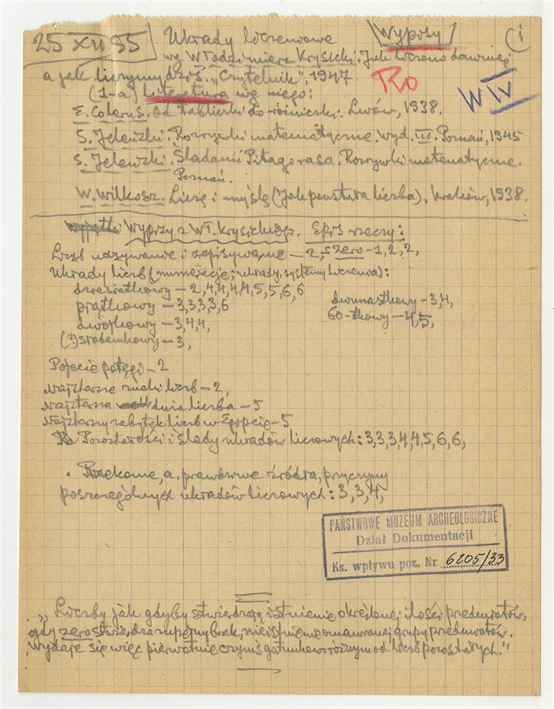 25 XII 55 Układy liczeniowe Wypisy 1
wg Włodzimierz Krysicki. Jak liczono dawniej,
a jak liczymy dziś. "Czytelnik", 1947. Ro
(1-a) Literatura wg niego: W IV
E. Colerus. Od tabliczki do różniczki. Lwów, 1938.
S. Jeleński. Rozrywki matematyczne. Wyd. III. Poznań, 1945
S. Jeleński. Śladami Pitagorasa. Rozrywki matematyczne.
Poznań.
W. Wilkosz. Liczę i myślę (Jak powstała liczba). Kraków, 1938.
Wypisy z Wł. Krysickiego. Spis rzeczy:
Liczb nazywanie i zapisywanie – 2, zero – 1, 2, 2,
Układy liczb (numeracje, układy, systemy liczenia):
dziesiątkowy – 2, 4, 4, 4, 4, 5, 5, 6, 6
piątkowy – 3, 3, 3, 3, 6 dwunastkowy – 3, 4,
dwójkowy – 3, 4, 4, 60-tkowy – 4, 5,
(?) siódemkowy – 3,
Pojęcie potęgi – 2
Najstarsze znaki liczb – 2,
Najstarsza liczba – 5
Najstarszy zabytek liczb w Egipcie – 5
Pozostałości i ślady układów liczbowych: 3, 3, 3, 4, 4, 5, 6, 6,
Rzekome, a prawdziwe źródła, przyczyny
poszczególnych układów liczbowych: 3, 3, 4,
PAŃSTWOWE MUZEUM ARCHEOLOGICZNE
Dział Dokumentacji
Ks. wpływu poz. Nr 6205/33
"Liczby jak gdyby stwierdzają istnienie określonej ilości przedmiotów,
gdy zero stwierdza zupełny brak, nieistnienie omawianej grupy przedmiotów.
Wydaje się więc pierwotnie czymś gatunkowo różnym od liczb pozostałych."